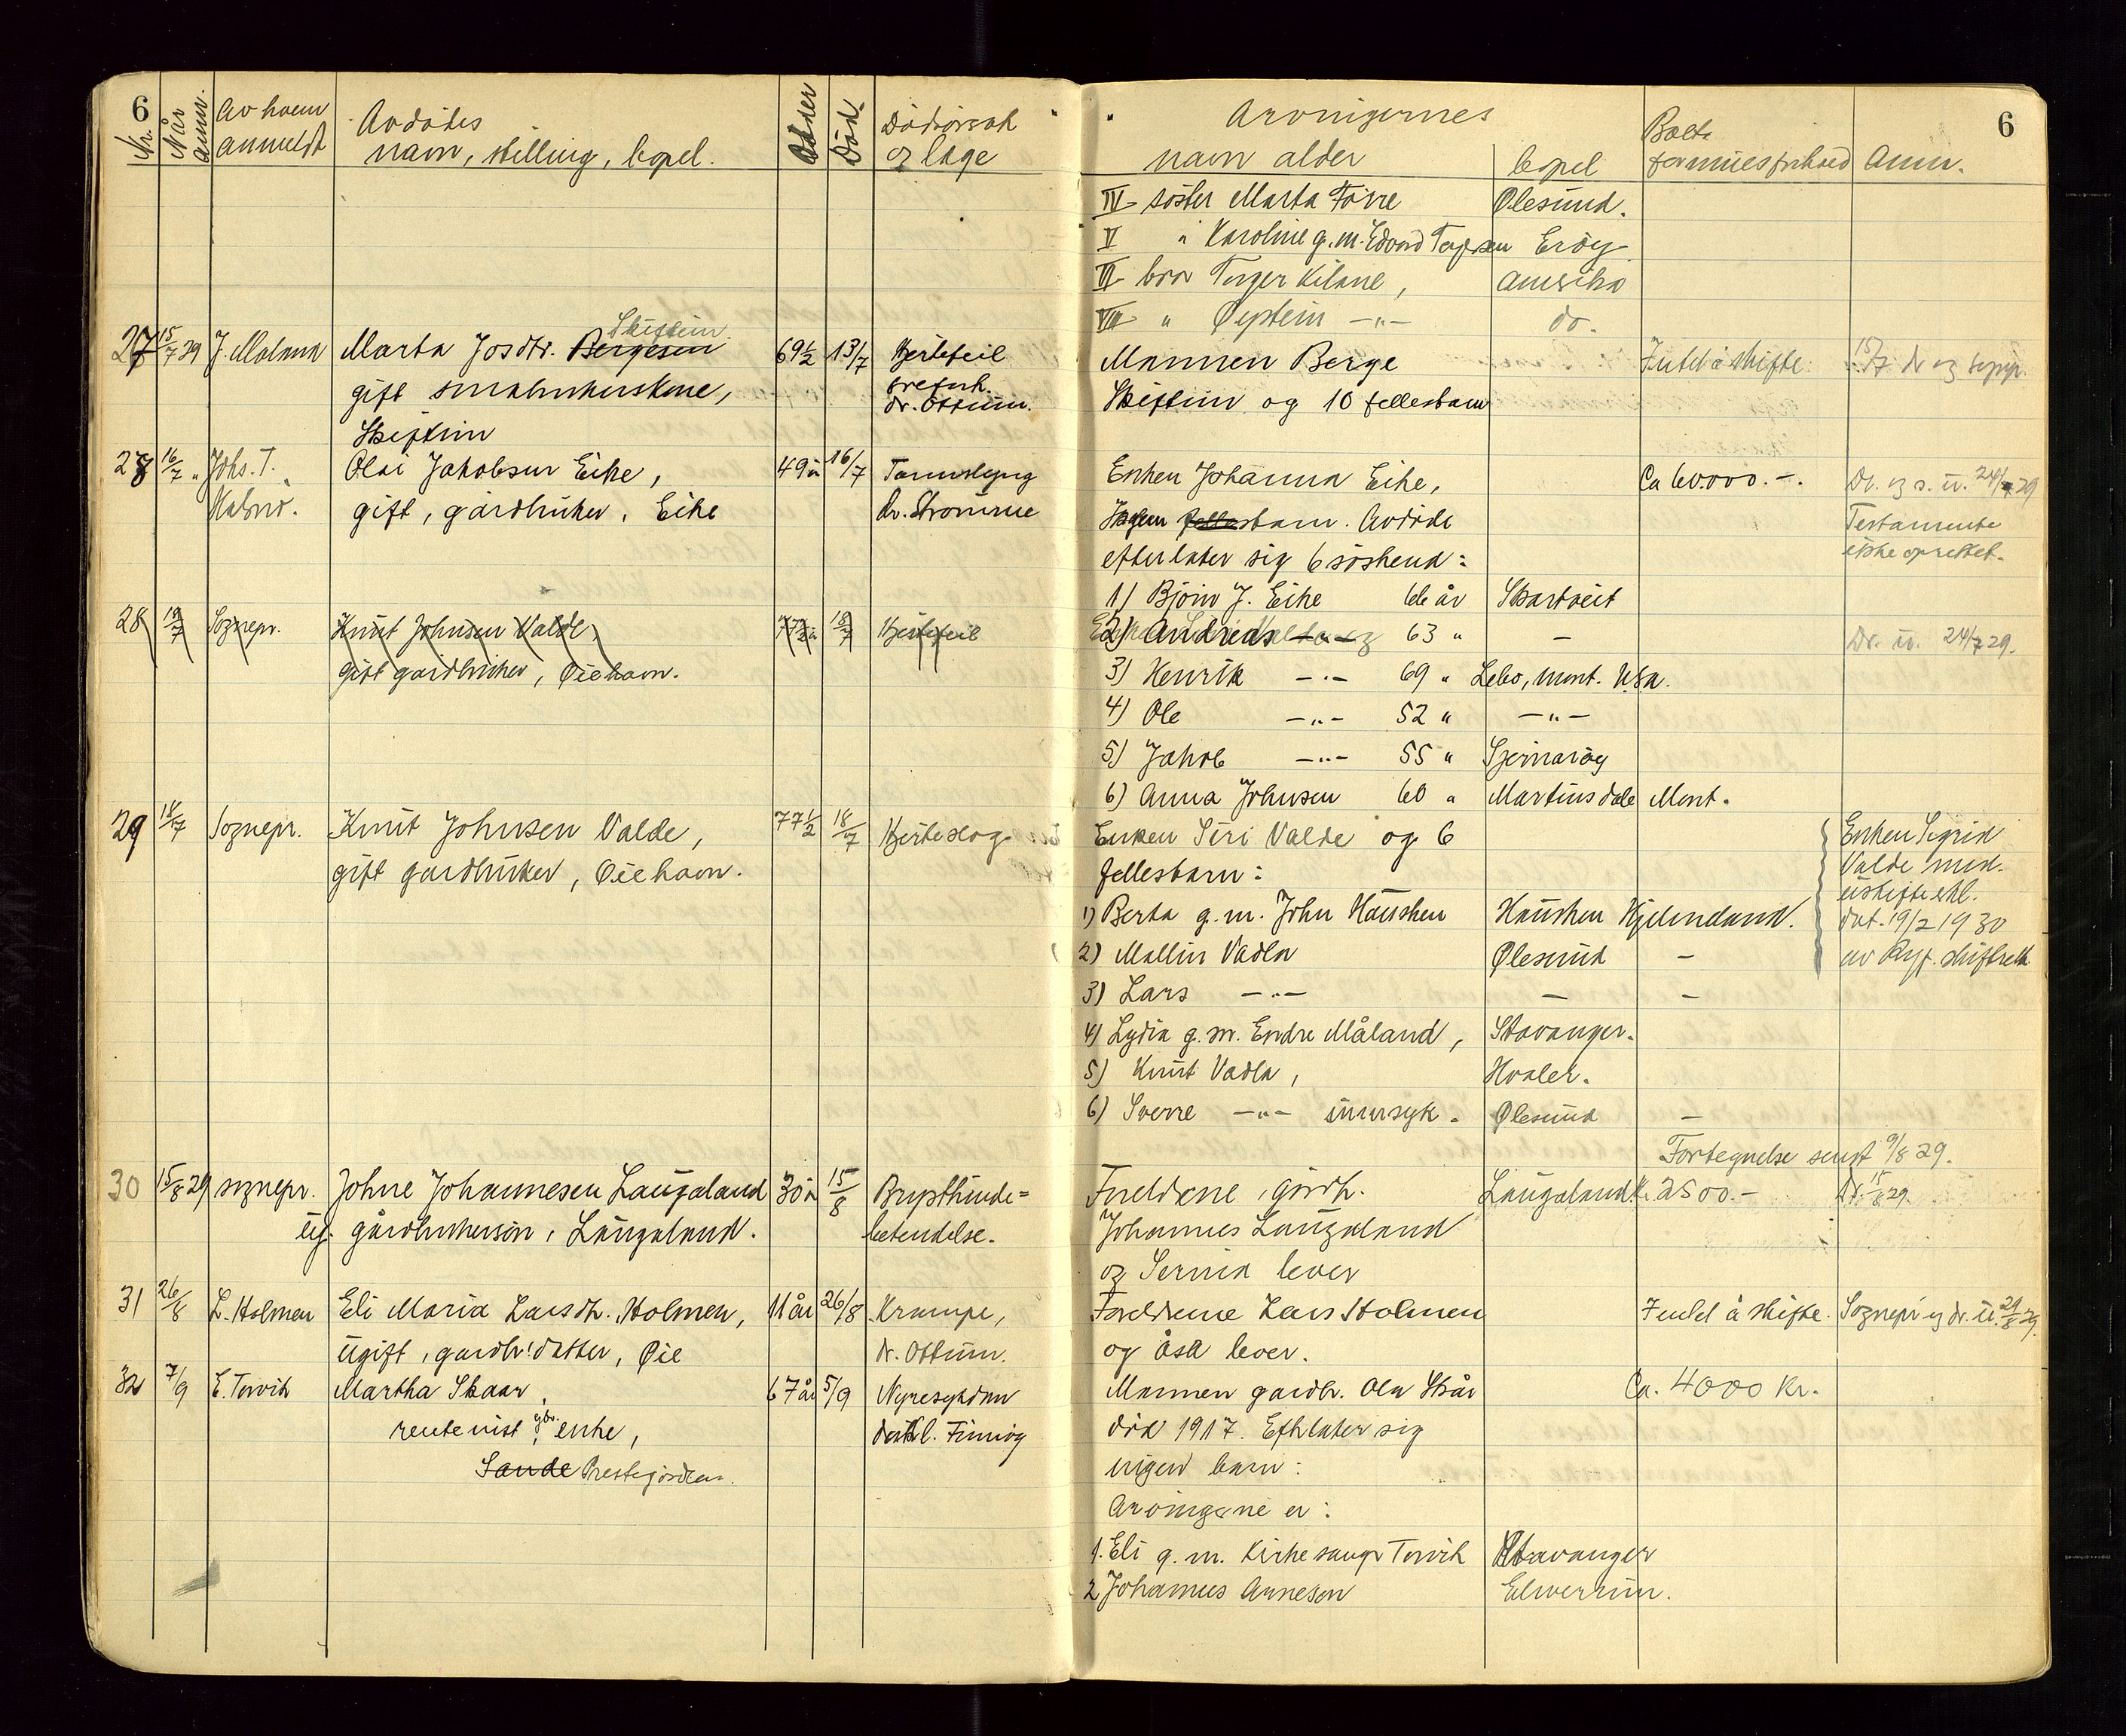 6
Nr.
Når anm.
Av hvem
anmeldt
Avdødes
navn, stilling, bopel.
Alder
Død
Dødsårsak
og læge
27 15/7 29 J. Maland Marta Josdtr. Bergesen Skiftun 69½ 13/7 Hjertefeil
gift småbrukerkone,
dr. Ottum.
Skiftun
28 16/7 " Johs. T. Olai Jakobsen Eike, 49 år 16/7
gift, gardbruker, Eike dr. Strømme
28 19/7 Sognepr. Knut Johnsen Valde, 77½ år 18/7 Hjertefeil
gift gardbruker, Øiehavn.
29 18/7 Sognepr. Knut Johnsen Valde, 77½ 18/7 Hjerteslag
gift gardbruker, Øiehavn.
30 15/8 29 sognepr. Johne Johannesen Laugaland 30 år 15/8 Brysthinde=
ug. gårdbrukersøn, Laugaland. betendelse.
31 26/8 L. Holmen Eli Maria Larsdtr. Holmen, 11 år 26/8 Krampe,
ugift, gardbr. datter, Øie dr. Ottum.
32 7/9 E. Torvik Martha Skaar, 67 år 5/9 Nyresykdom
rentenist, gbr. enke, Finnøy
Sande Prestegården.
6
Arvingernes
navn alder
bopel
Boets
formuesforhold
Anm.
IV søster Marta Førre Ølesund.
V " Karoline g. m. Edvard Terjesen Erøy
VI bror Torger Kilane, Amerika
VII " Øystein —"— do.
Mannen Berge Intet å skifte. 15/7 dr og sognpr.
Skiftun og 10 fellesbarn
Enken Johanna Eike, Ca 60.000.-. Dr. og s. u. 24/7 29
Ingen fellesbarn. Avdøde Testamente
efterlater sig 6 søskend: ikke oprettet.
1) Bjørn J. Eike 66 år Skartveit
2) Andreas —"— 63 " — Dr. u. 24/7 29.
3) Henrik —"— 69 " Lebo, Mont. Usa.
4) Ole —"— 52 " —"—
5) Jakob —"— 55 " Sjernarøy
6) Anna Johnsen 60 " Martinsdale Mont.
Enken Siri Valde og 6 Enken Sigrid
fellesbarn: Valde med.
uskiftebl.
1) Berta g. m. John Hausken Hausken Hjelmeland. dat. 19/2 1930
2) Mallin Vadla Ølesund — av Ryf. skifterett
3) Lars —"— — —
4) Lydia g. m. Endre Måland, Stavanger.
5) Knut Vadla, Hvaler.
6) Sverre —"— sinnsyk. Ølesund —
Fortegnelse sendt 9/8 29.
Foreldrene, gårdb. Laugaland k. 2500.- dr. 15/8 29.
Johannes Laugaland
og Serina lever
Foreldrene Lars Holmen Intet å skifte. Sognepr og dr. u. 29/8 29.
og Åsa lever.
Mannen gardbr. Ola Skår Ca. 4000 Kr.
død 1917. Efterlater sig
ingen barn:
Arvingerne er:
1. Eli g. m. Kirkesanger Torvik Stavanger
2 Johannes Arneson Elverum.